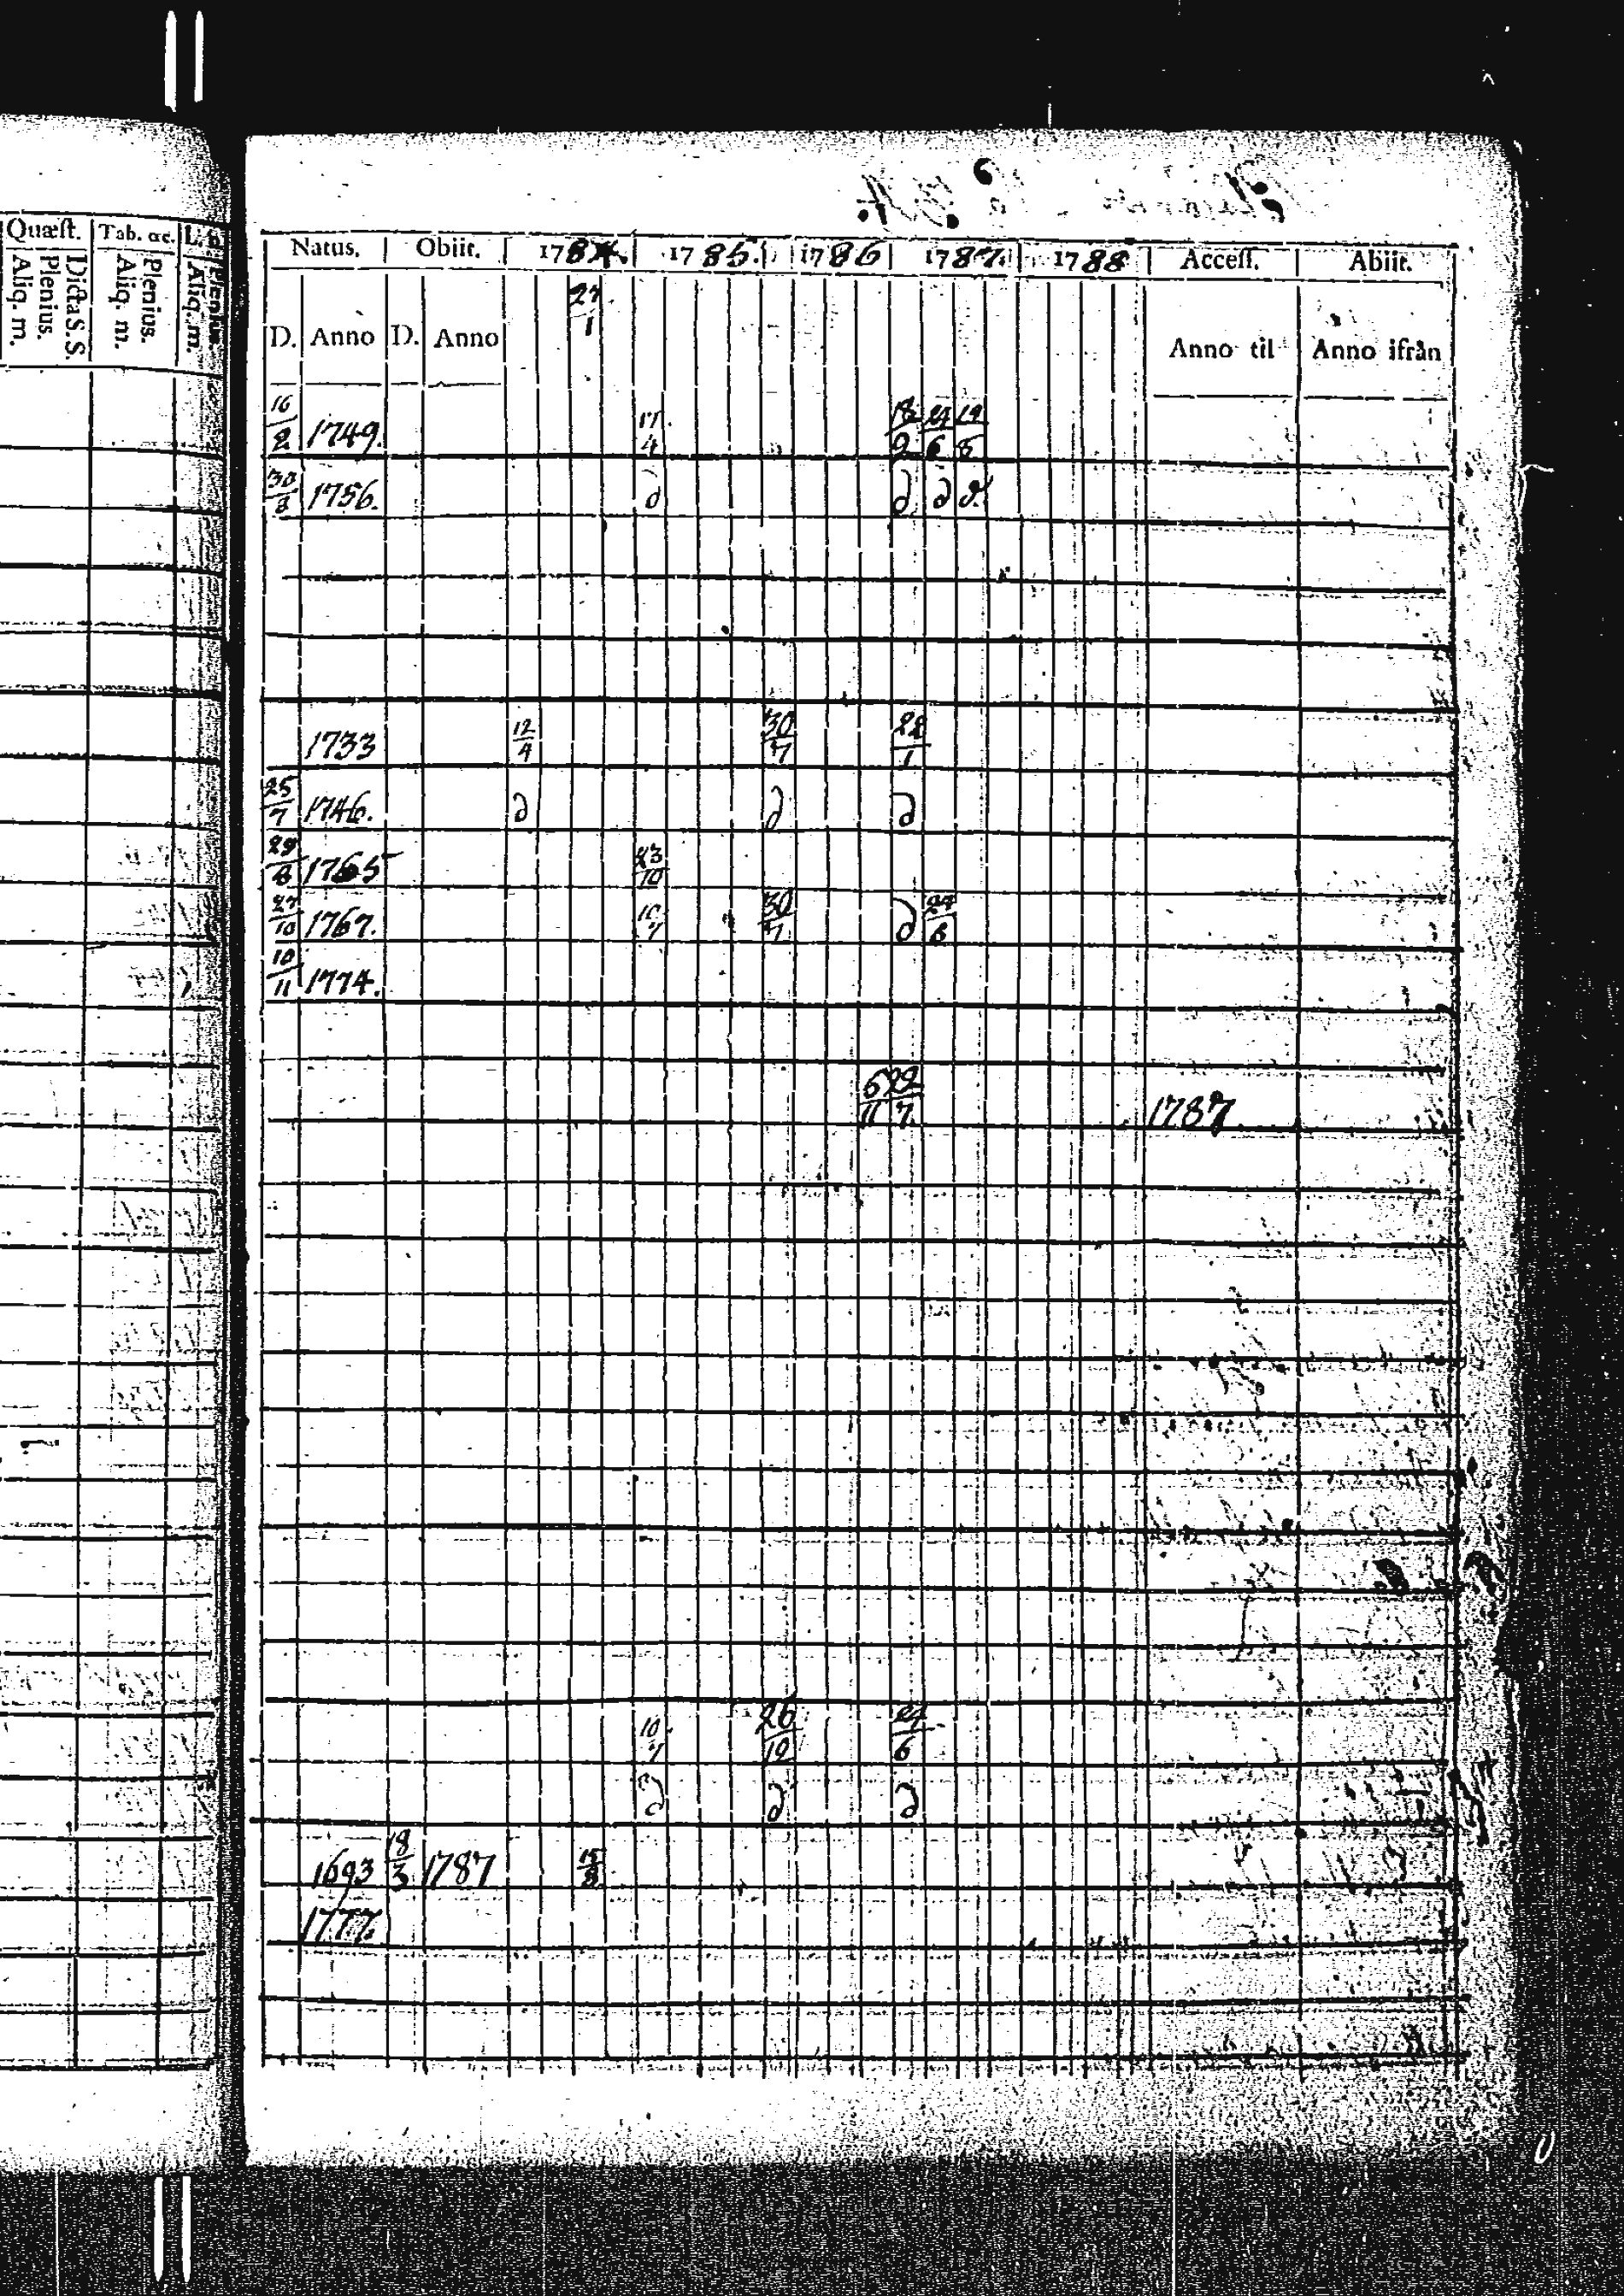 Quæst. Tab. œc.
Dicta S. S. Plenius. Aliq. m.
Plenius. Aliq. m.
Plenius. Aliq. m.
Natus. Obiit. 1784. 1785. 1786 1787. 1788 Access. Abiit.
27/1
D. Anno D. Anno Anno til Anno ifrån
16/2 1749. 17/4 18/2 24/6 19/8
30/8 1756. d d d d
1733 12/4 30/7 22/1
25/7 1746. d d d
29/8 1765 23/10
27/10 1767. 10/7 30/7 d 24/6
10/11 1774.
5/11 22/7 1787
10/7 26/12 24/6
d d d
1693 18/3 1787 15/8
1777.